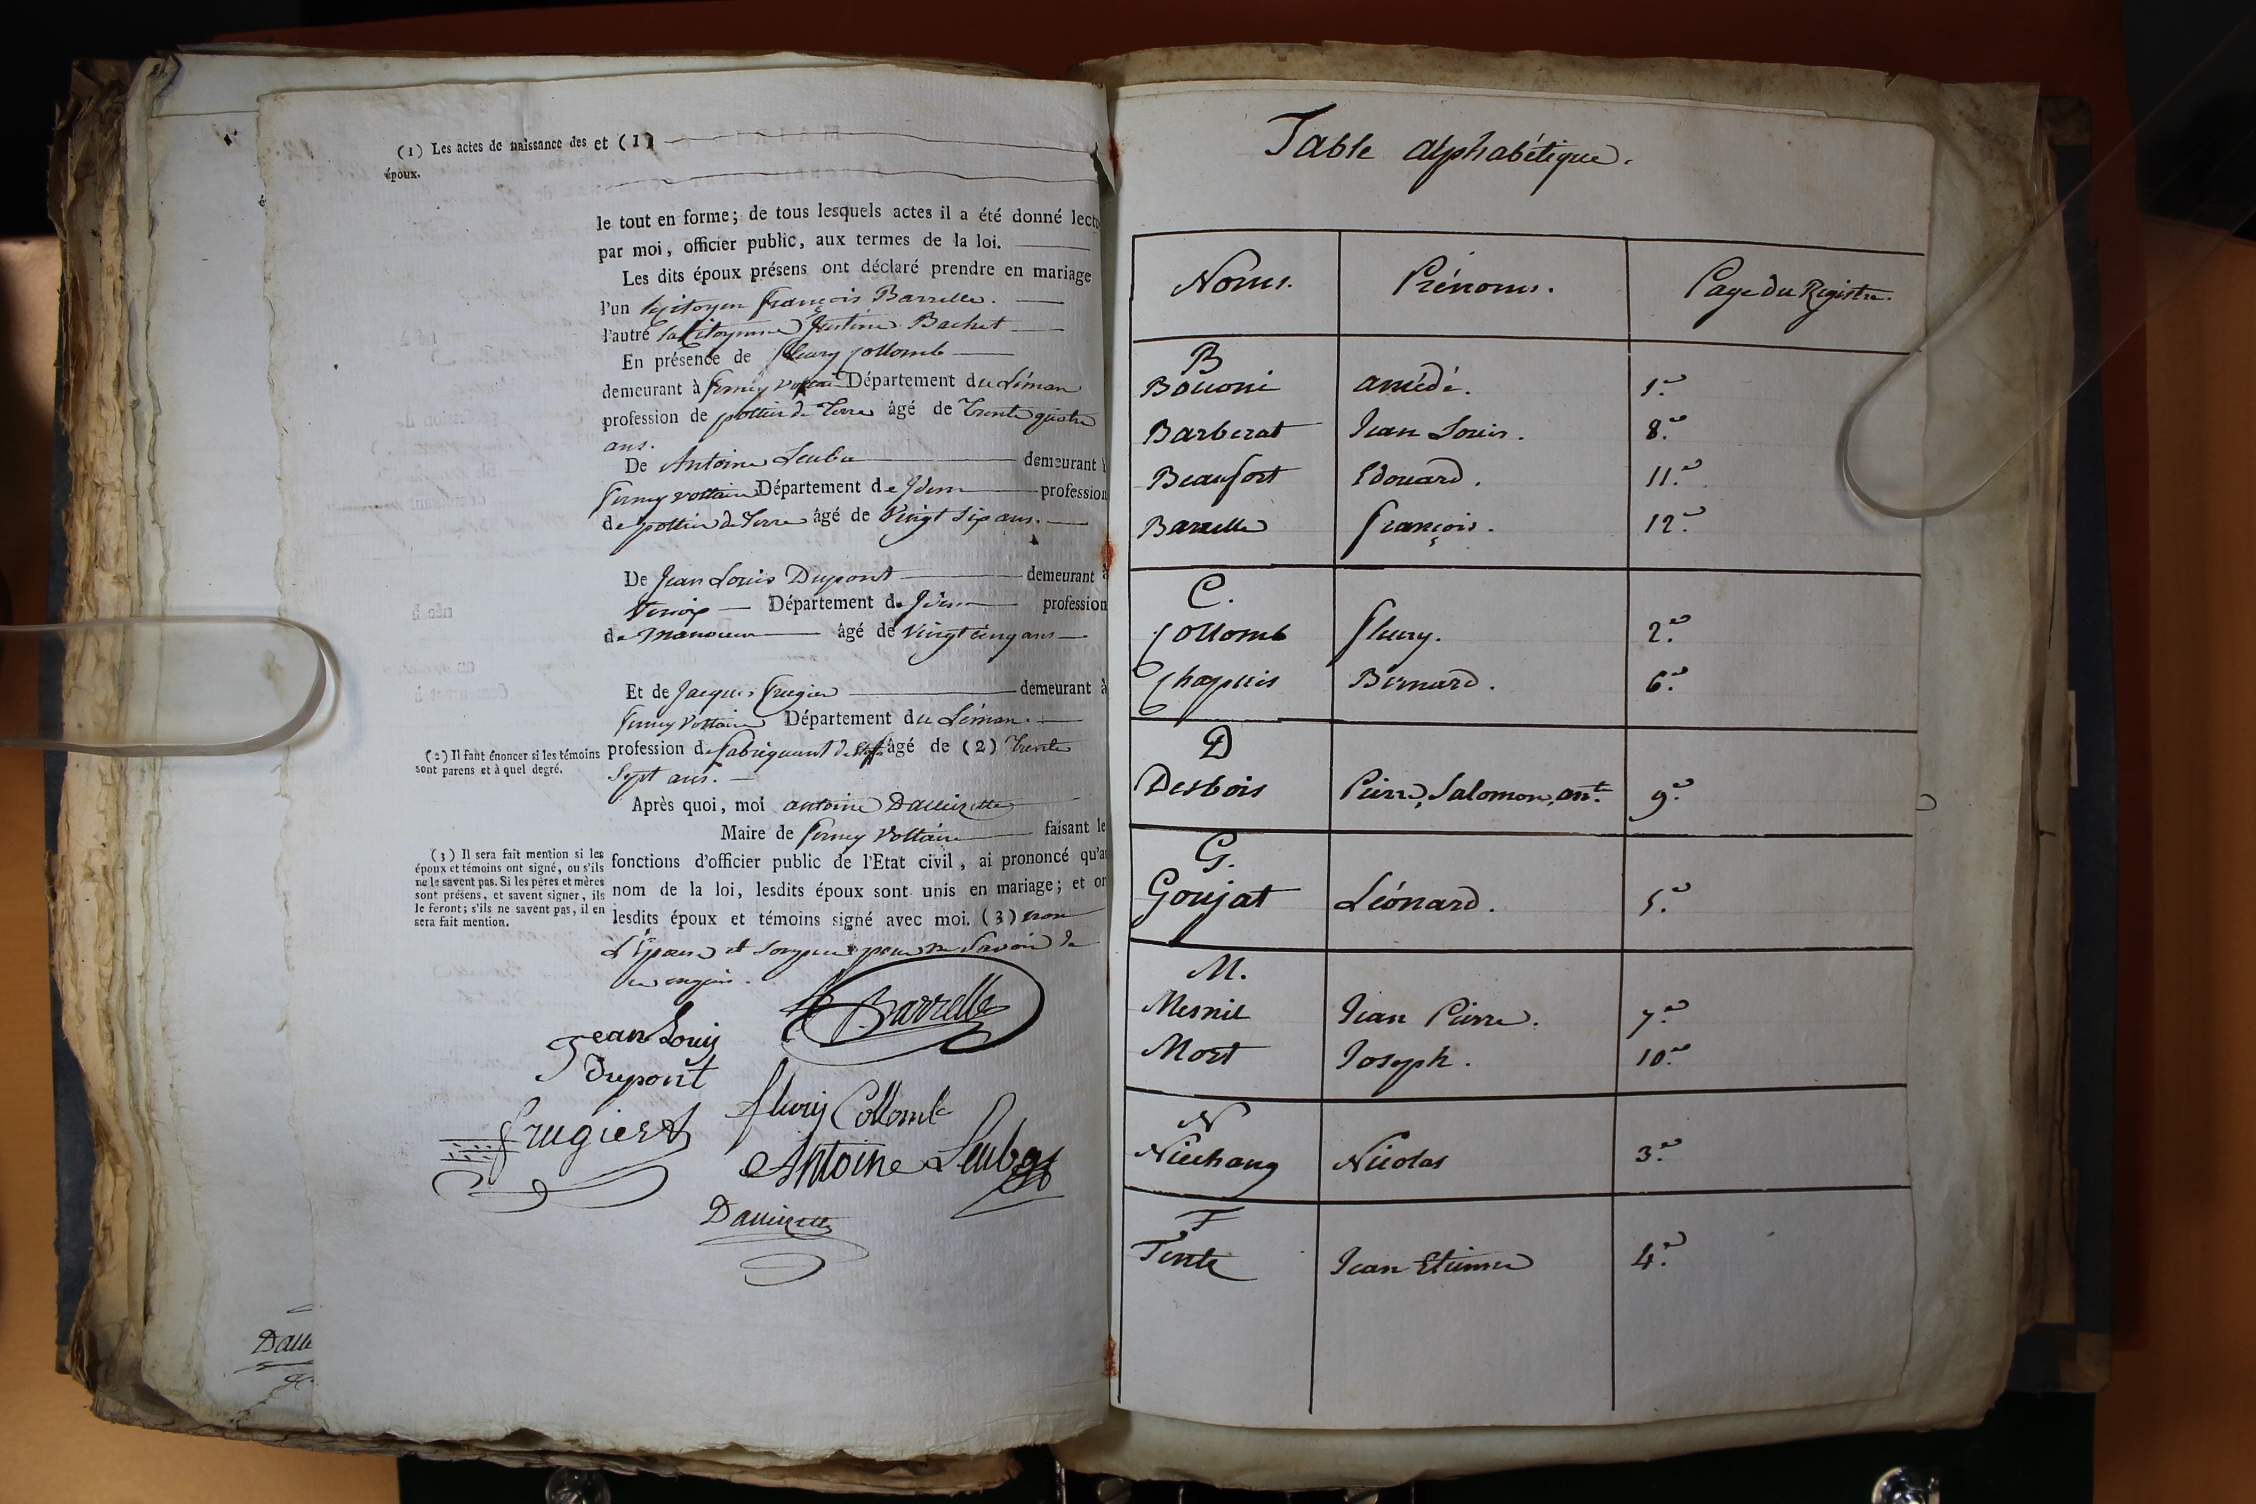 (1) Les actes de naissance des
époux.
et (1)
le tout en forme; de tous lesquels actes il a été donné lect
par moi, officier public, aux termes de la loi.
Les dits époux présens ont déclaré prendre en mariage
l'un le citoyen françois Barrelle.
l'autre la Citoyenne Justine Bachet
En présence de fleury Collomb
demeurant à ferney voltaire Département du Léman
profession de pottier de Terre âgé de Trente quatre
ans.
De Antoine Leuba demeurant à
ferney voltaire Département de Idem profession
de pottier de Terre âgé de Vingt six ans.
De Jean Louis Dupont demeurant à
Département de Idem profession
de manoeuvre âgé de Vingt cinq ans
Et de Jacques frugier demeurant à
ferney Voltaire Département du Léman.
(2) Il faut énoncer si les témoins
sont parens et à quel degré.
profession de fabriquant de âgé de (2) Trente
Sept ans.
Après quoi, moi antoine
Maire de ferney Voltaire faisant le
(3) Il sera fait mention si les
époux et témoins ont signé, ou s'ils
ne le savent pas. Si les pères et mères
sont présens, et savent signer, ils
le feront; s'ils ne savent pas, il en
sera fait mention.
fonctions d'officier public de l'Etat civil, ai prononcé qu'a
nom de la loi, lesdits époux sont unis en mariage; et on
lesdits époux et témoins signé avec moi. (3) non
L'Epouse et pour ne Savoir de
ce enquis.
Barrelle
Jean Louis
Dupont
fleury Collomb
frugier
Antoine Leuba
Table alphabétique.
Noms. Prénoms. Page du Registre.
B
Bouoni amédé. 1.e
Barberat Jean Louis. 8.e
Beaufort Edouard. 11.e
Barrelle françois. 12.e
C.
Collomb fleury. 2.e
Chappuis Bernard. 6.e
D
Desbois Pierre, Salomon, ant. 9.e
G.
Goujat Léonard. 5.e
M.
Mesnil Jean Pierre. 7.e
Mort Joseph. 10.e
N
Nicolas 3.e
T
Tente Jean Etienne 4.e